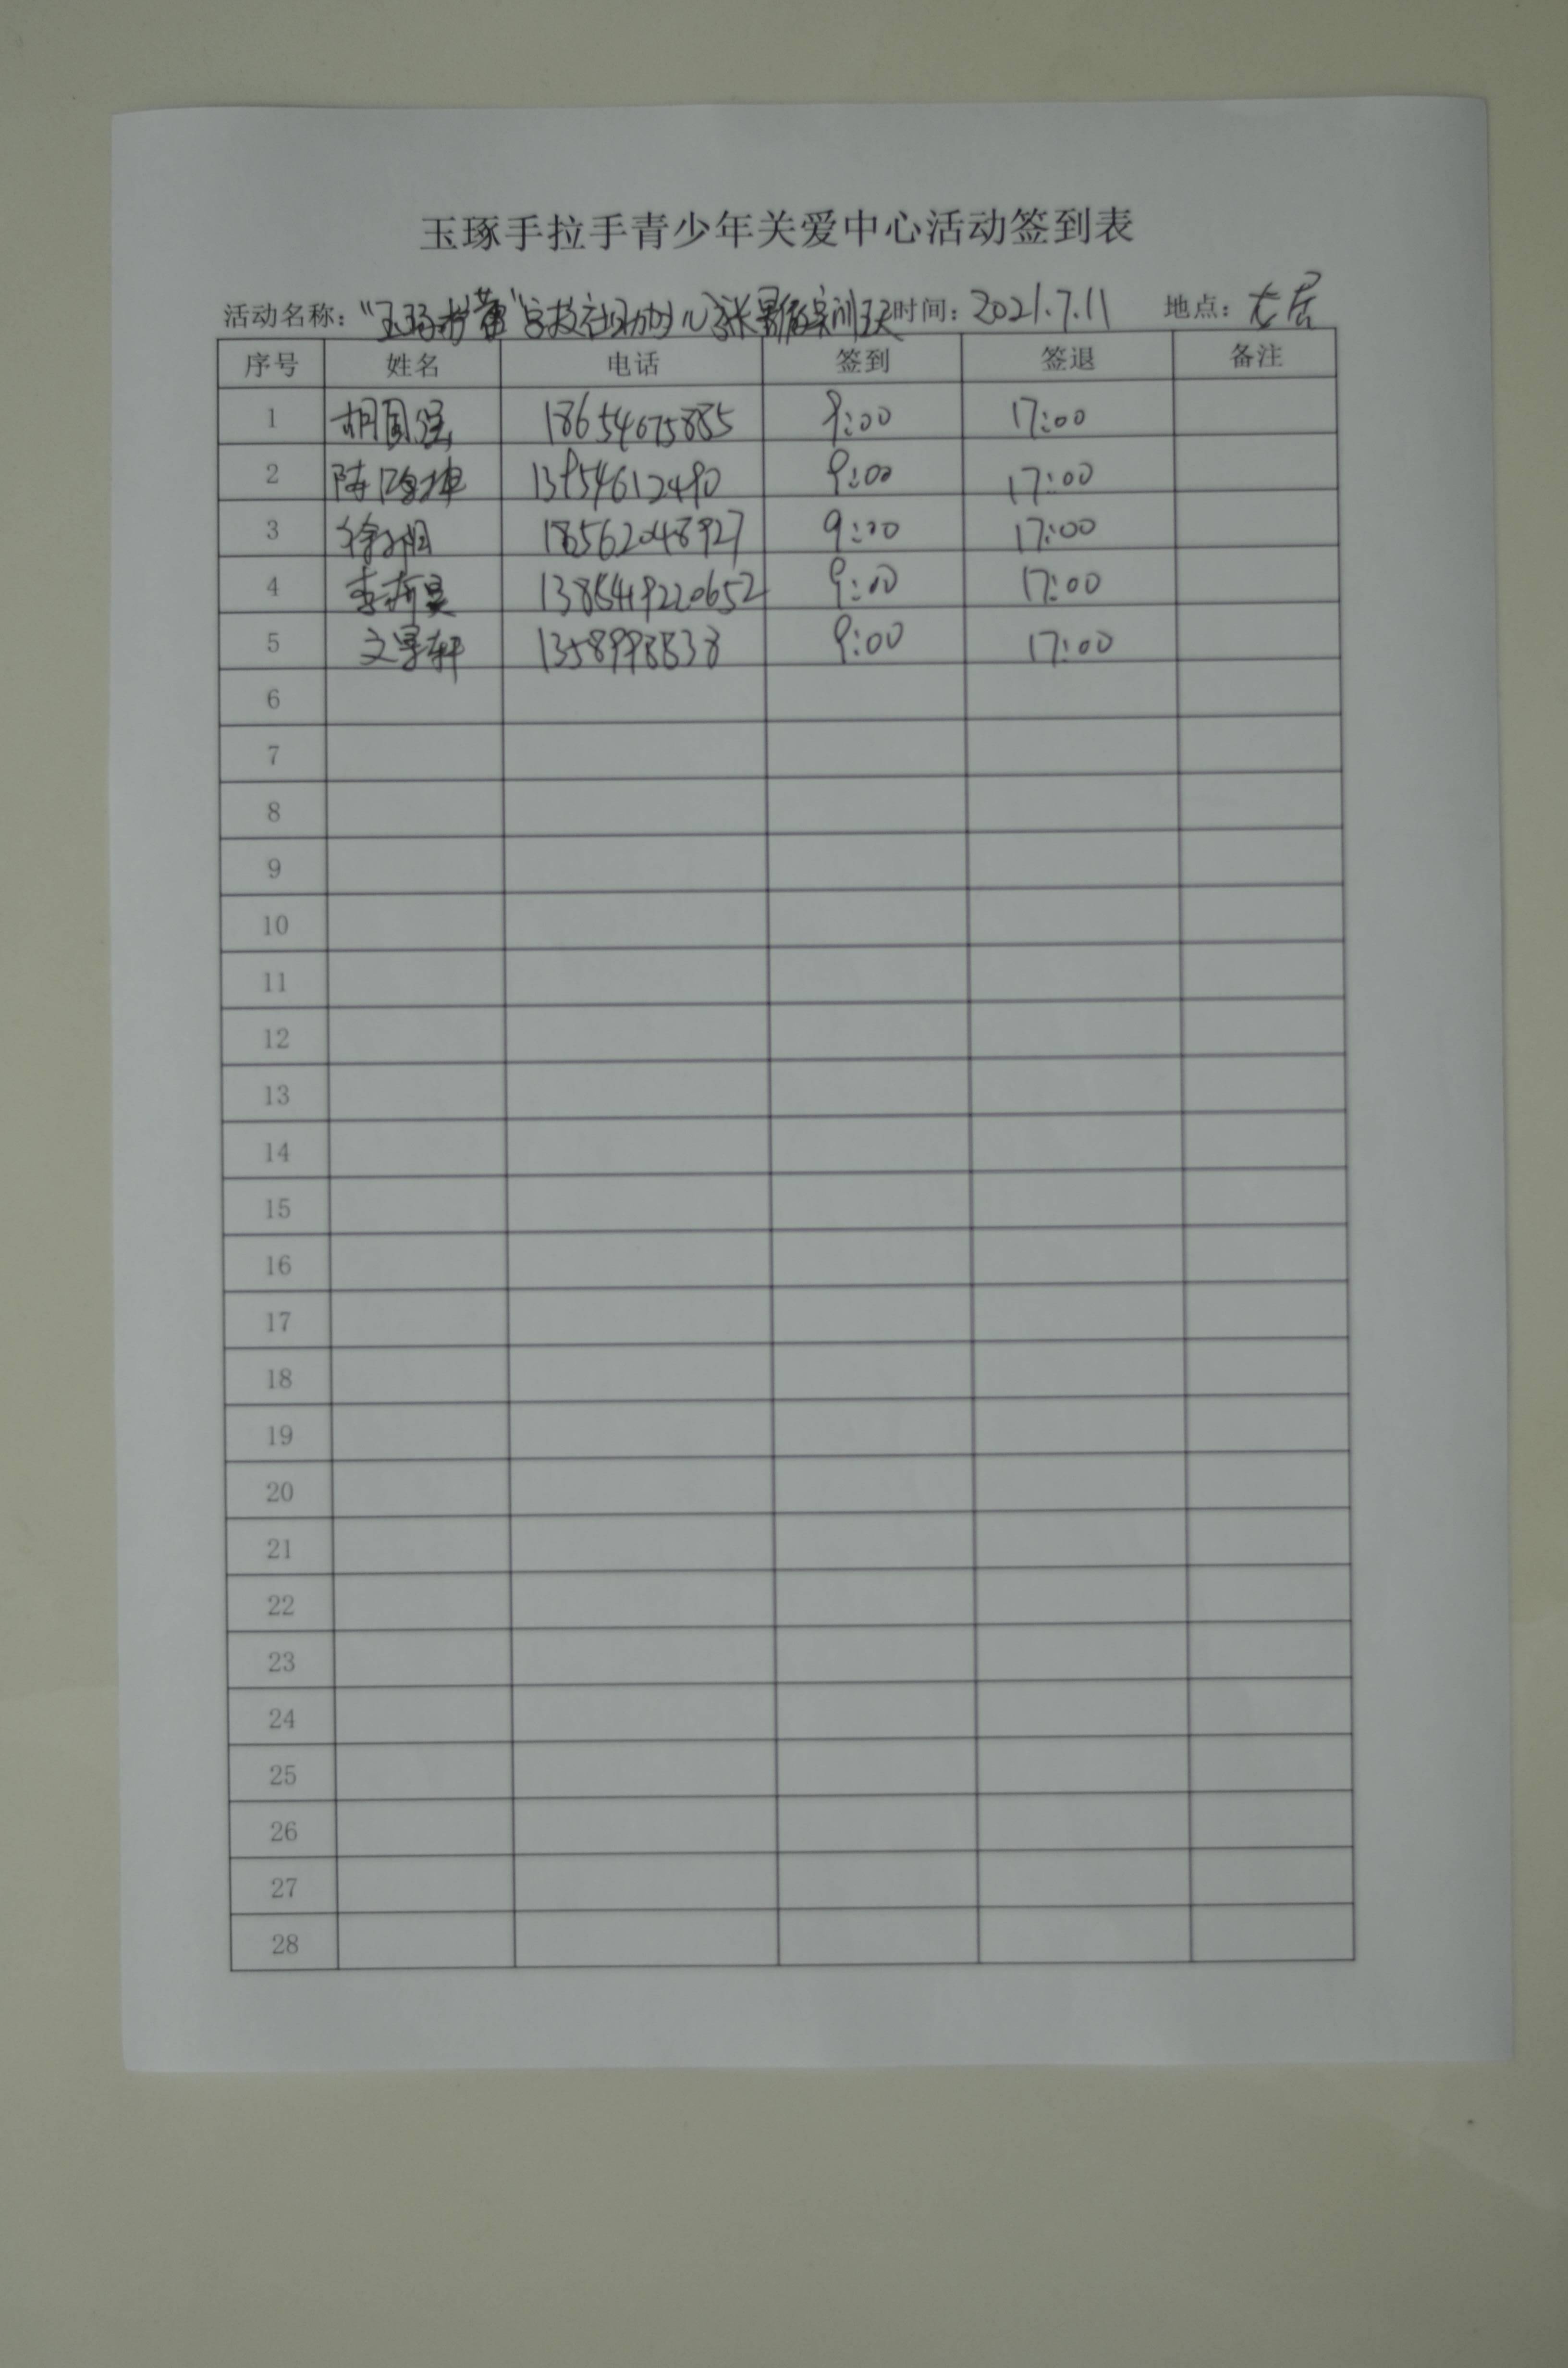 玉琢手拉手青少年关爱中心活动签到表
活动名称： 时间：2021.7.11 地点：
序号 姓名 电话 签到 签退 备注
1 胡国强 18654675885 9:00 17:00
2 陈鸿坤 13954612490 9:00 17:00
3 徐阳 18562048927 9:00 17:00
4 李 9:00 17:00
5 文宇轩 1358998838 9:00 17:00
6
7
8
9
10
11
12
13
14
15
16
17
18
19
20
21
22
23
24
25
26
27
28